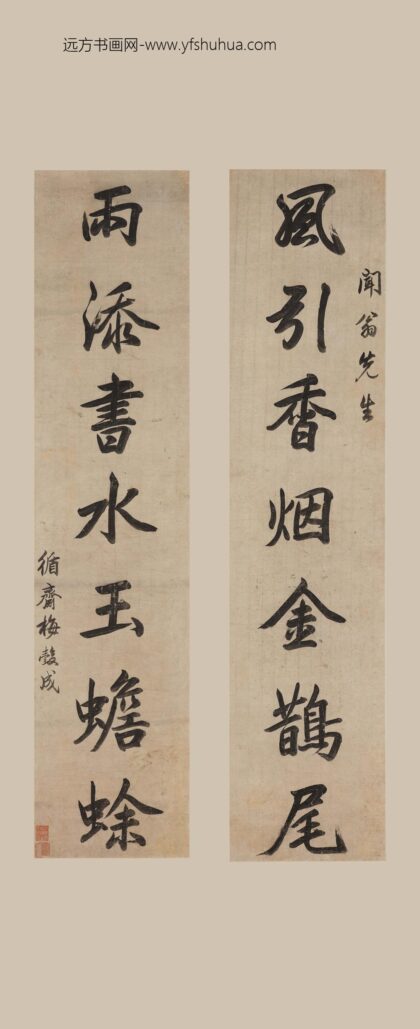 远方书画网-www.yfshuhua.com
聞翁先生
風引香烟金鵲尾
雨添書水玉蟾蜍
循齋梅瑴成